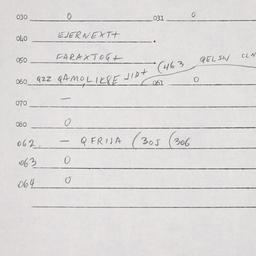 030 0 031 0
040 EJERNEXT+
050 FARAXTOG+
(463 QELSN CLN
060 922 QAMOLIKPE JID+ 061 0
070 —
080 0
062 — QFRIJA (305 (306
063 0
064 0